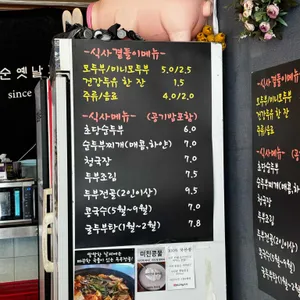 순 옛날
since
-식사곁들이메뉴-
모두부/미니모두부 5.0/2.5
건강두유 한 잔 1.5
주류/음료 4.0/2.0
-식사메뉴- (공기밥포함)
초당순두부 6.0
순두부찌개(매콤,하얀) 7.0
청국장 7.0
두부조림 7.5
두부전골(2인이상) 9.5
콩국수(5월~9월) 7.0
굴두부탕(11월~2월) 7.8
-식사곁
모두부/미
건강두유
주류/음료
-식사메뉴-
초당순두부
순두부찌개(매콤
청국장
두부조림
두부전골(2인
콩국수(5월~
굴두부탕(11월